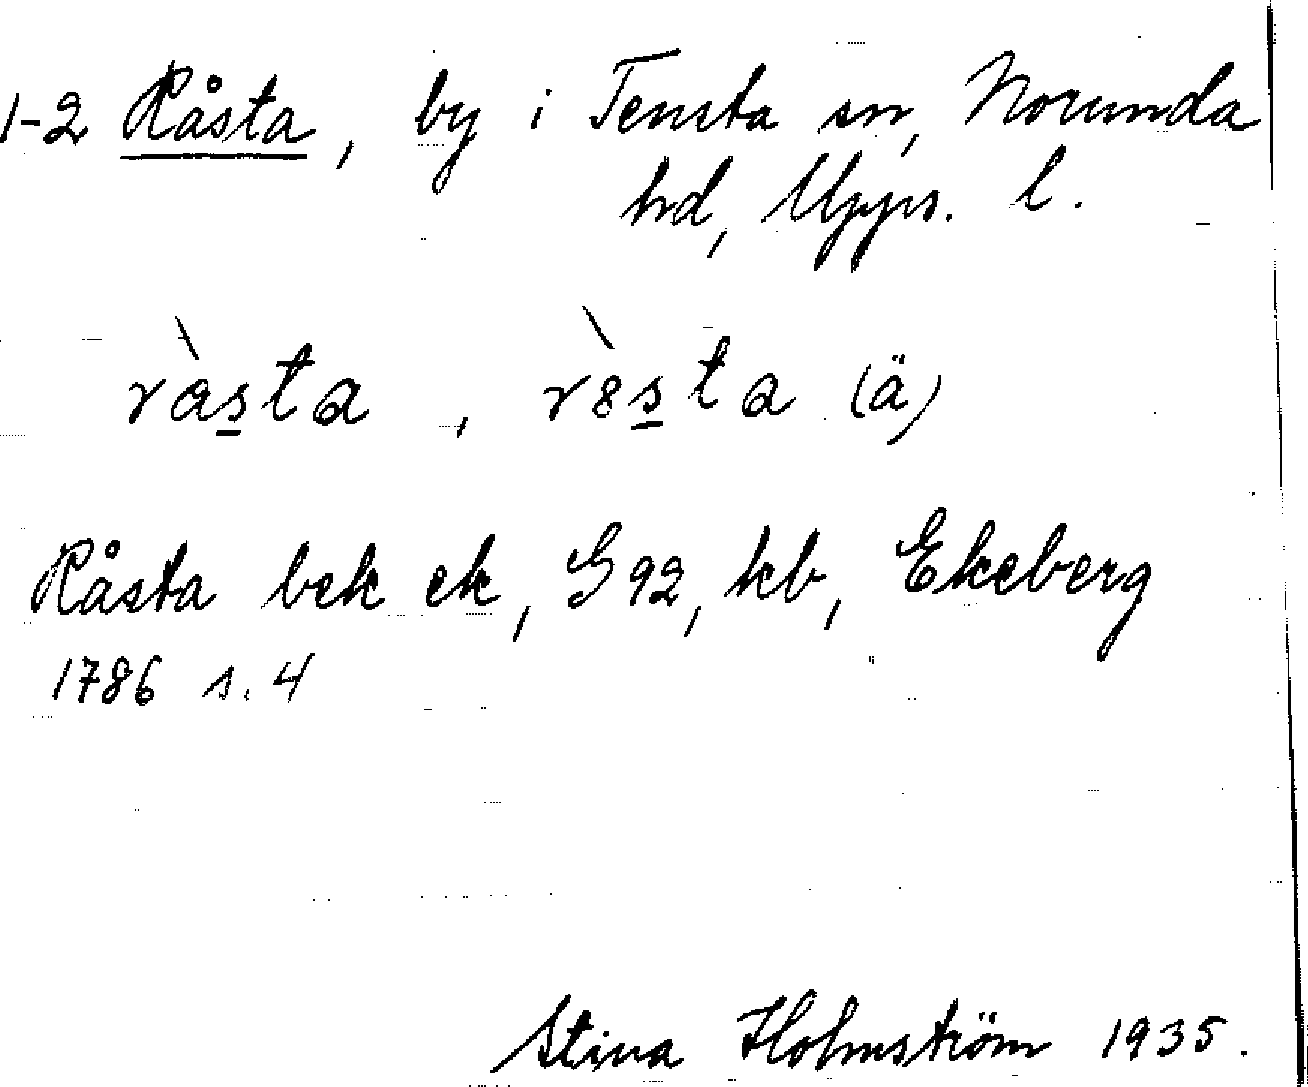 1-2 Råsta, by i Tensta sn, Norunda
hd, Upps. l.
ràsta, rè̀sta (ä)
Råsta bek ek, G 92, kb, Ekeberg
1786 s. 4
Stina Holmström 1935.